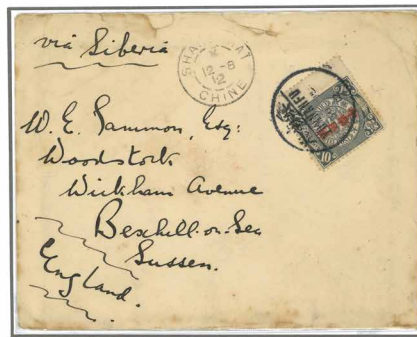 via Siberia
SHA AI
12-8
12
CHINE
W. E. Sammon, Esq:
Woodstock
Wickham Avenue
Bexhill-on-Sea
Sussex.
England.
10